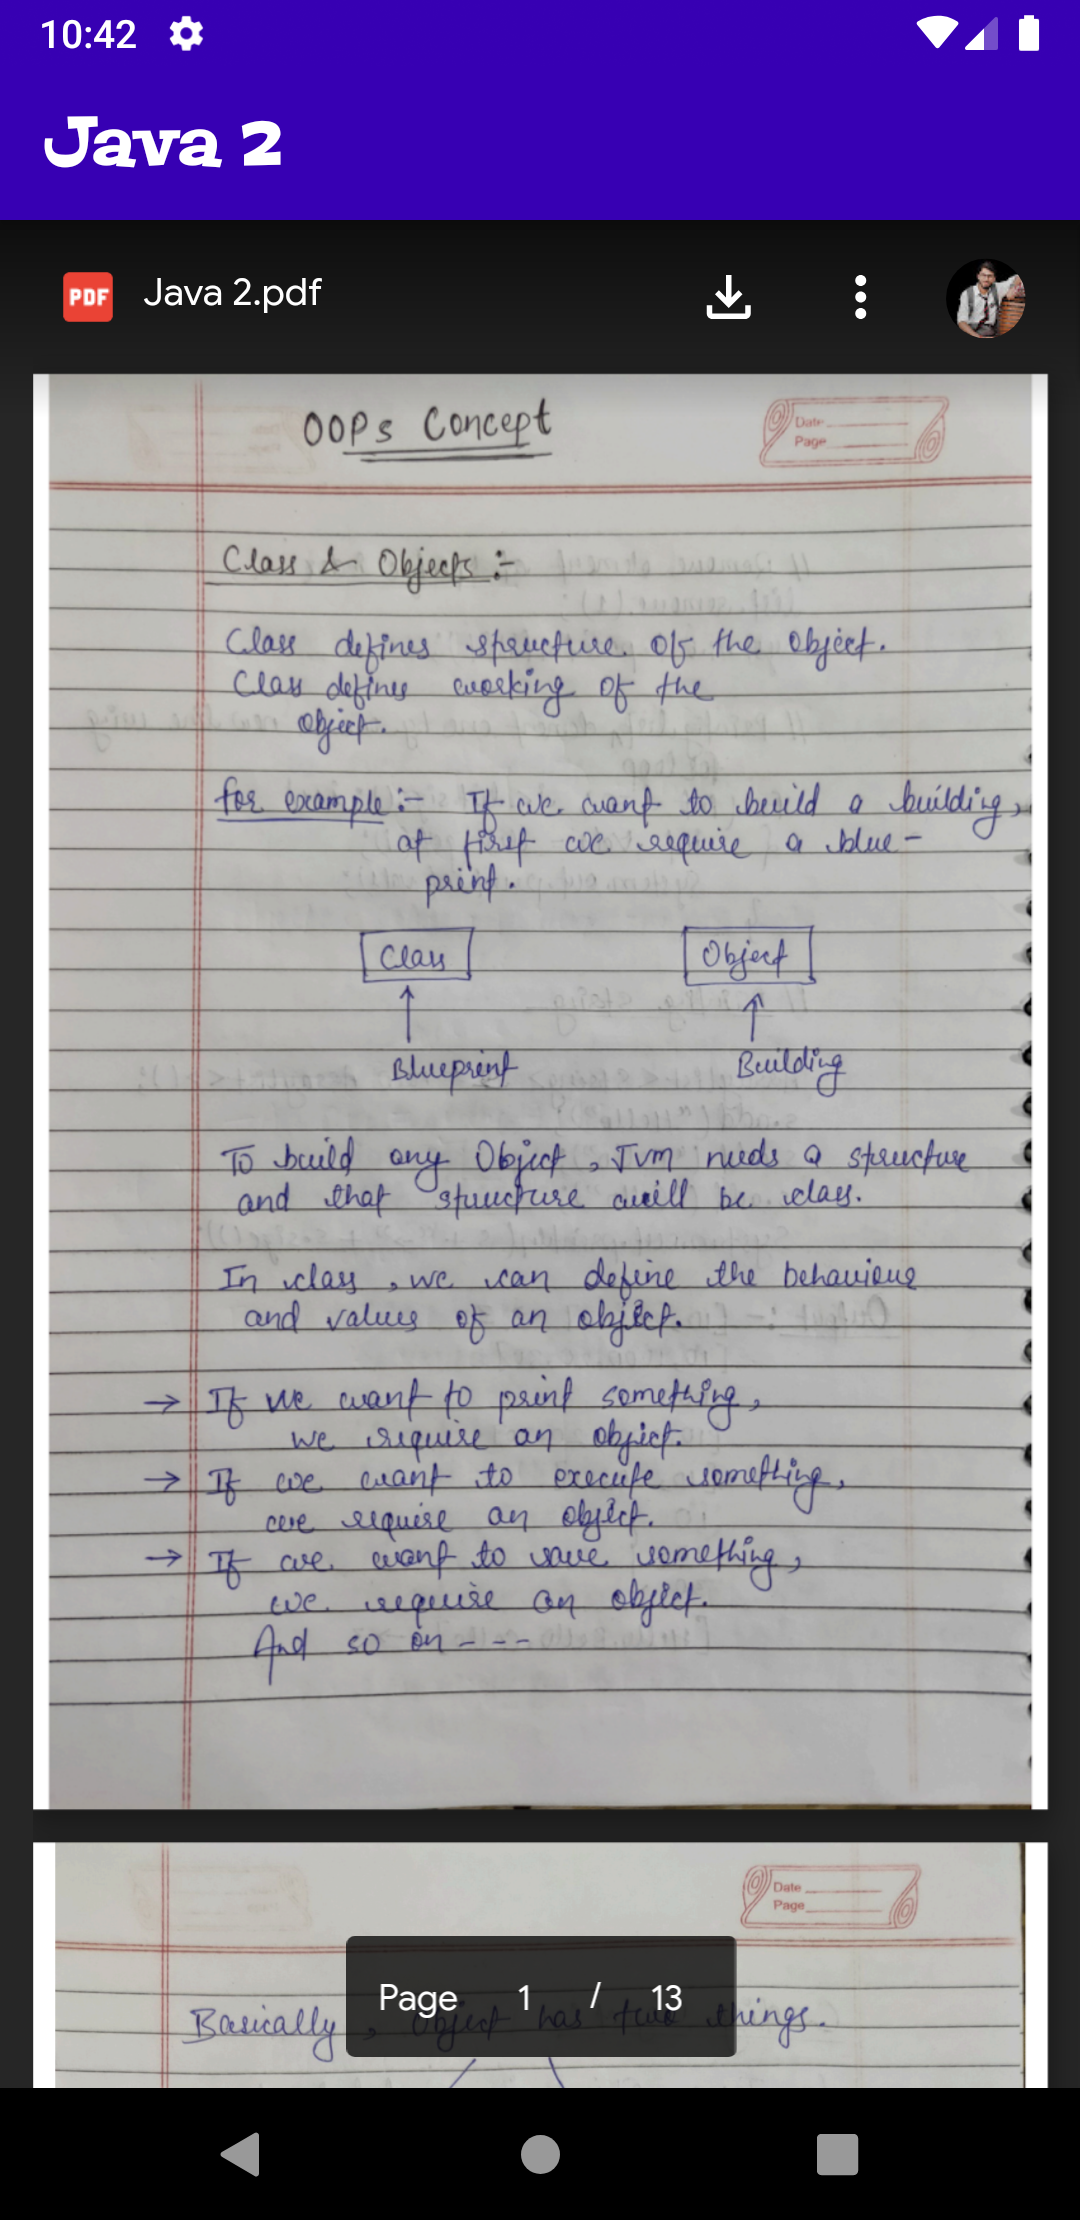 10:42
Java 2
PDF Java 2.pdf
OOPs Concept
Date
Page
Class & Objects :-
Class defines structure of the object.
Class defines working of the
object.
for example :- If we want to build a building,
at first we require a blue-
print.
Class Object
Blueprint Building
To build any Object, Jvm needs a structure
and that structure will be class.
In class, we can define the behaviour
and values of an object.
→ If we want to print something,
we require an object.
→ If we want to execute something,
we require an object.
→ If we want to save something,
we require an object.
And so on - - -
Date
Page
Page 1 / 13
Basically, Object has two things.